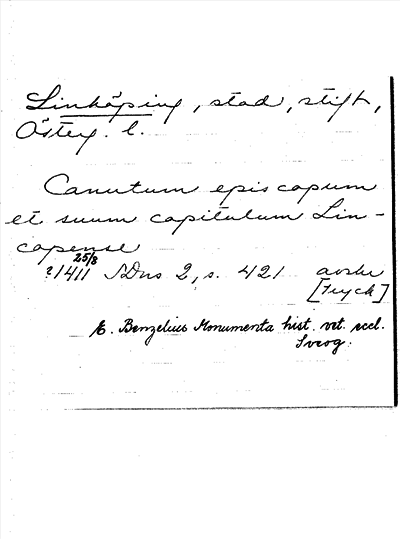 Linköping, stad, stift,
Östey. l.
Canutum episcopum
et suum capitulum Lin-
copense
25/8
?1411 SDns 2, s. 421 avskr
[Tryck]
E. Benzelius Monumenta hist. vet. eccl.
Sveog.